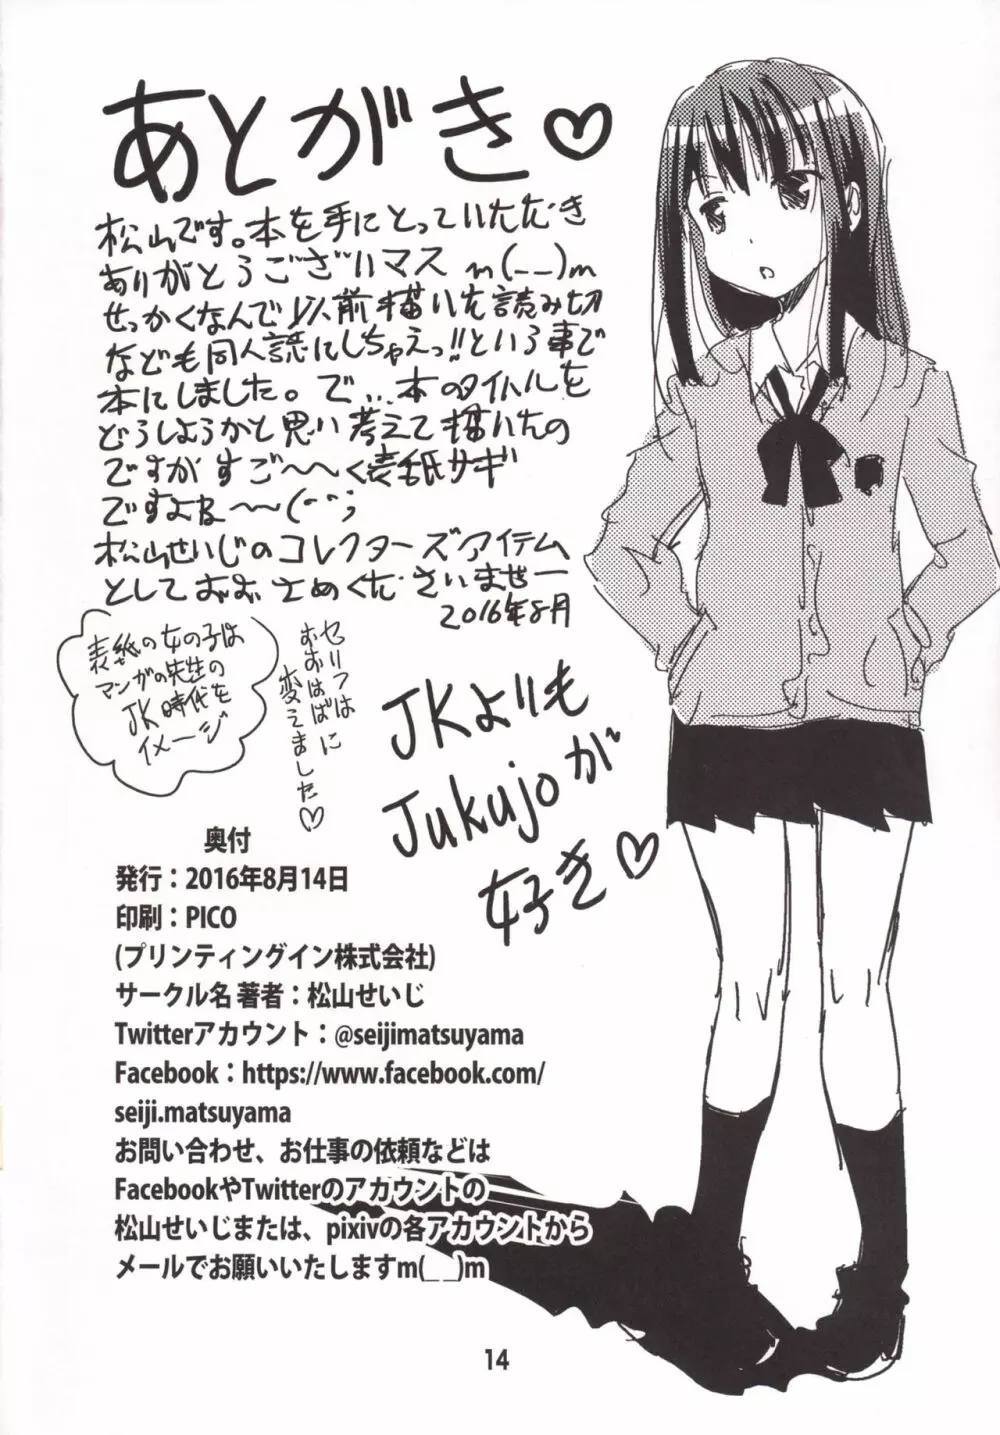 あとがき♡
松山です。本を手にとっていただき
ありがとうございマス m(__)m
せっかくなんで以前描いた読み切
なども同人誌にしちゃえっ!!という事で
本にしました。で…本のタイトルを
どうしようかと思い考えて描いたの
ですがすご〜〜く表紙サギ
ですよね〜〜(--;
松山せいじのコレクターズアイテム
としておおさめくださいませー
2016年8月
表紙の女の子は
マンガの先生の
JK時代を
イメージ
セリフは
おおはばに
変えました♡
JKよりも
Jukujoが
好き♡
奥付
発行：2016年8月14日
印刷：PICO
(プリンティングイン株式会社)
サークル名 著者：松山せいじ
Twitterアカウント：@seijimatsuyama
Facebook：https://www.facebook.com/
seiji.matsuyama
お問い合わせ、お仕事の依頼などは
FacebookやTwitterのアカウントの
松山せいじまたは、pixivの各アカウントから
メールでお願いいたしますm(_ _)m
14